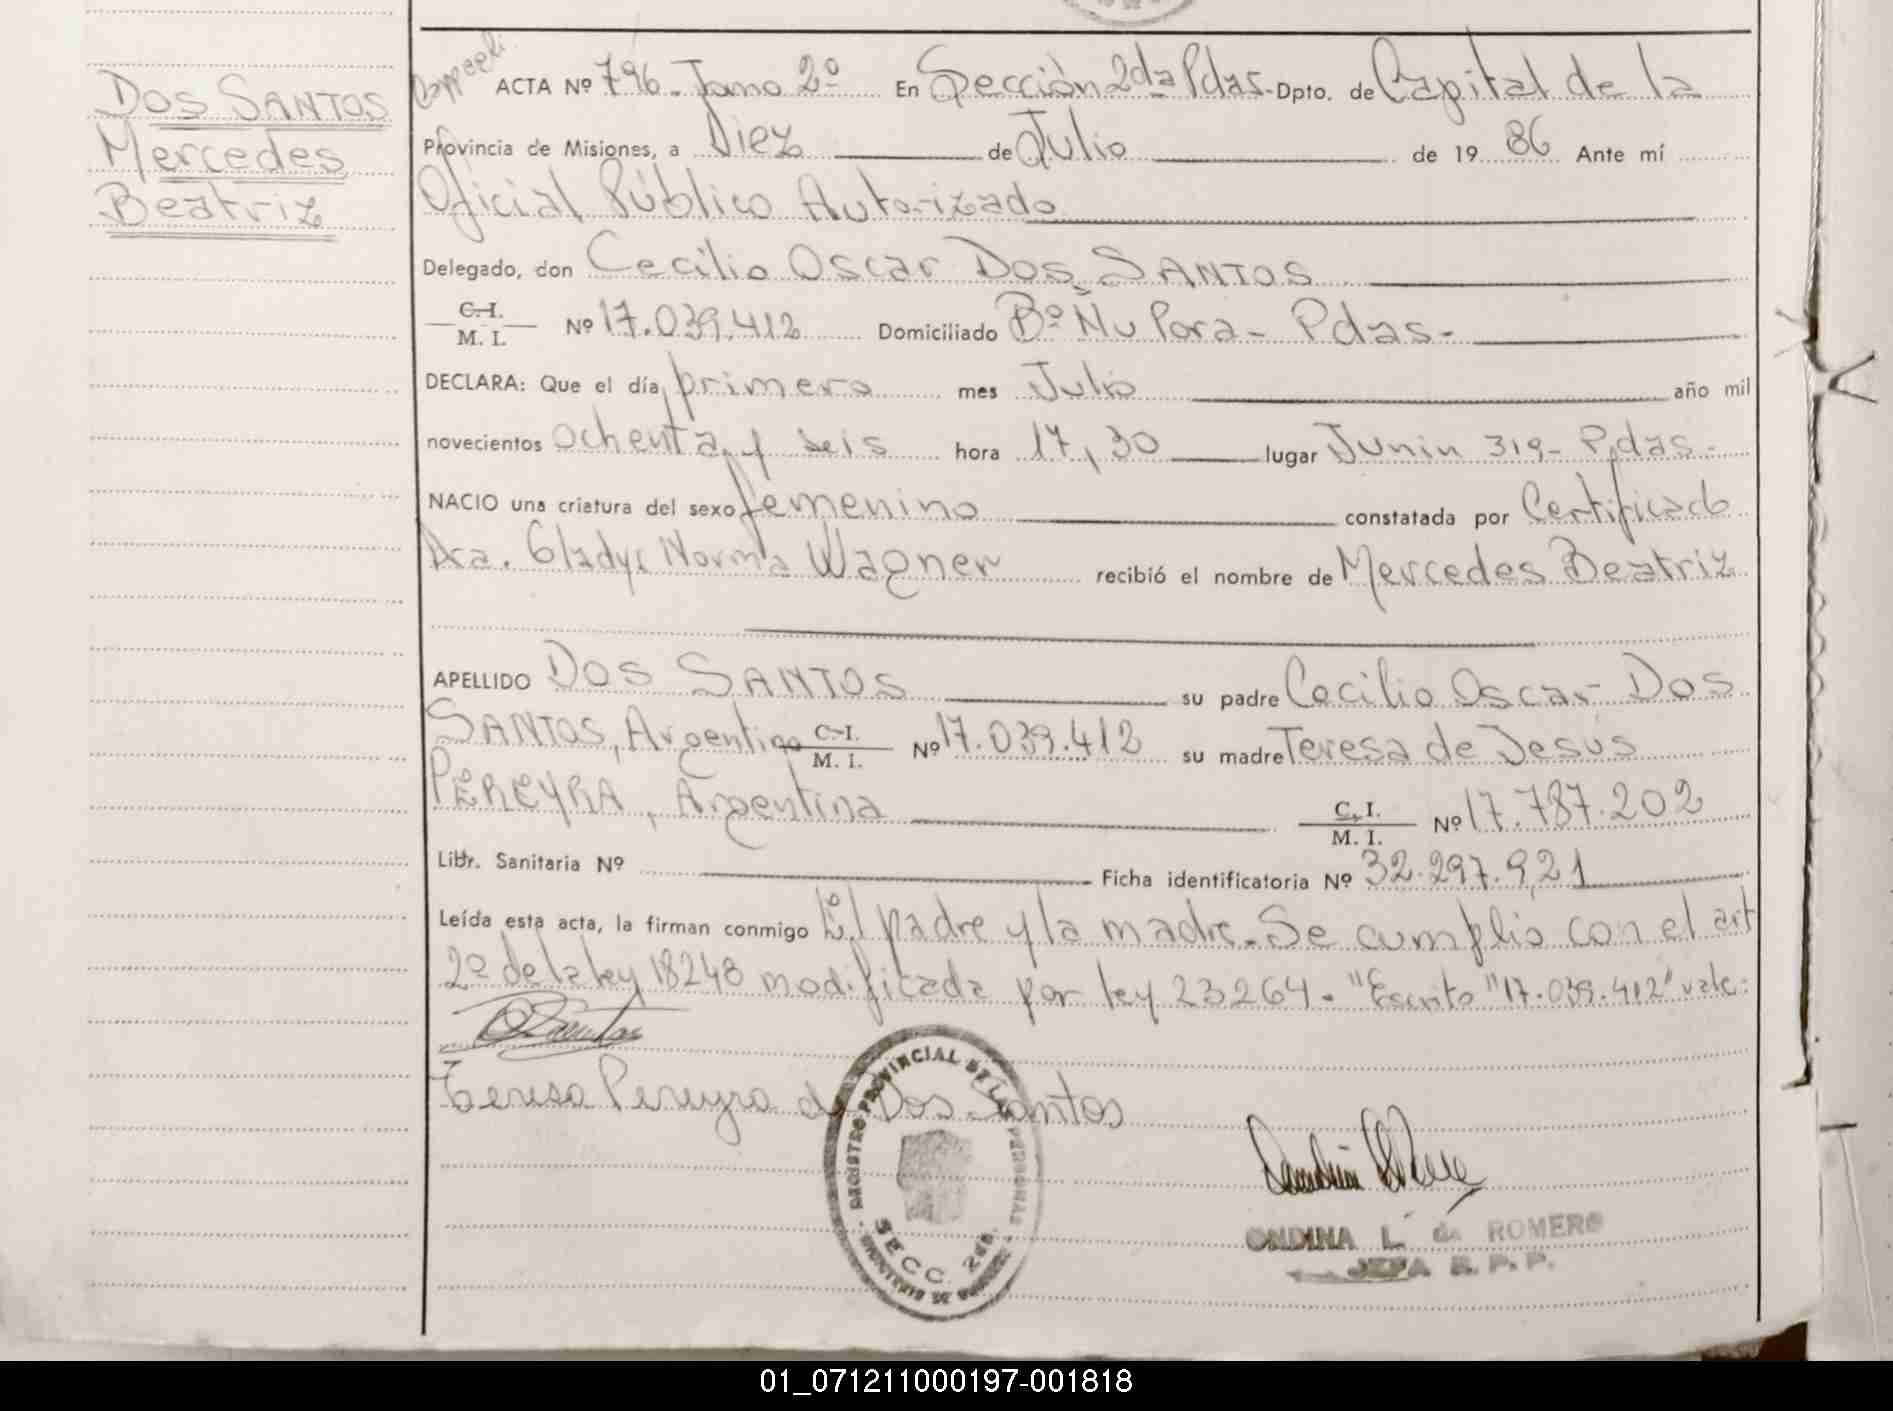 DOS SANTOS
Mercedes
Beatriz
ACTA Nº 796 - Tomo 2º En Sección 2da Pdas. Dpto. de Capital de la
Provincia de Misiones, a Diez de Julio de 19 86 Ante mí
Oficial Público Autorizado
Delegado, don Cecilio Oscar DOS SANTOS
C.I.
M. I. Nº 17.039.412 Domiciliado Bº Ñu Pora - Pdas -
DECLARA: Que el día primero mes Julio año mil
novecientos ochenta y seis hora 17,30 lugar Junin 319 - Pdas -
NACIO una criatura del sexo femenino constatada por Certificado
Dra. Gladys Norma Wagner recibió el nombre de Mercedes Beatriz
APELLIDO DOS SANTOS su padre Cecilio Oscar DOS
SANTOS, Argentino C.I. M. I. Nº 17.039.412 su madre Teresa de Jesús
PEREYRA, Argentina C. I. M. I. Nº 17.787.202
Libr. Sanitaria Nº Ficha identificatoria Nº 32.297.921
Leída esta acta, la firman conmigo El padre y la madre. Se cumplio con el art
2º de la ley 18248 modificada por ley 23264. "Escrito" 17.039.412" vale:
Teresa Pereyra de Dos Santos
REGISTRO PROVINCIAL DE LAS PERSONAS
SECC. 2da.
ONDINA L. de ROMERO
JEFA R. P. P.
01_071211000197-001818